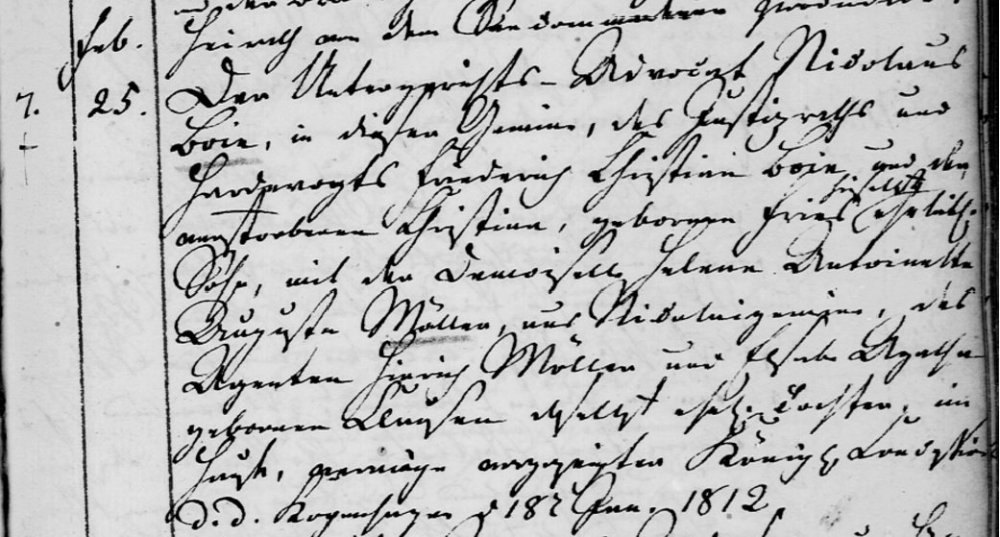 Feb.
Heirath
7. 25. Der Untergerichts-Advocat Nicolaus
Boie, in dieser Gemeine, des Justizraths und
Hardesvogts Friederich Christian Boie und der
hieselbst
verstorbenen Christine, gebornen Fries ehelich.
Sohn, mit der Demoiselle Helene Antoinette
Auguste Möller, aus Nicolaigemeine, des
Agenten Hinrich Möller und Elsabe Agatha
gebornen Clausen daselbst ehel. Tochter, im
Hause, vermöge vorgezeigter Königl.
d. d. Kopenhagen d 18t Jan. 1812